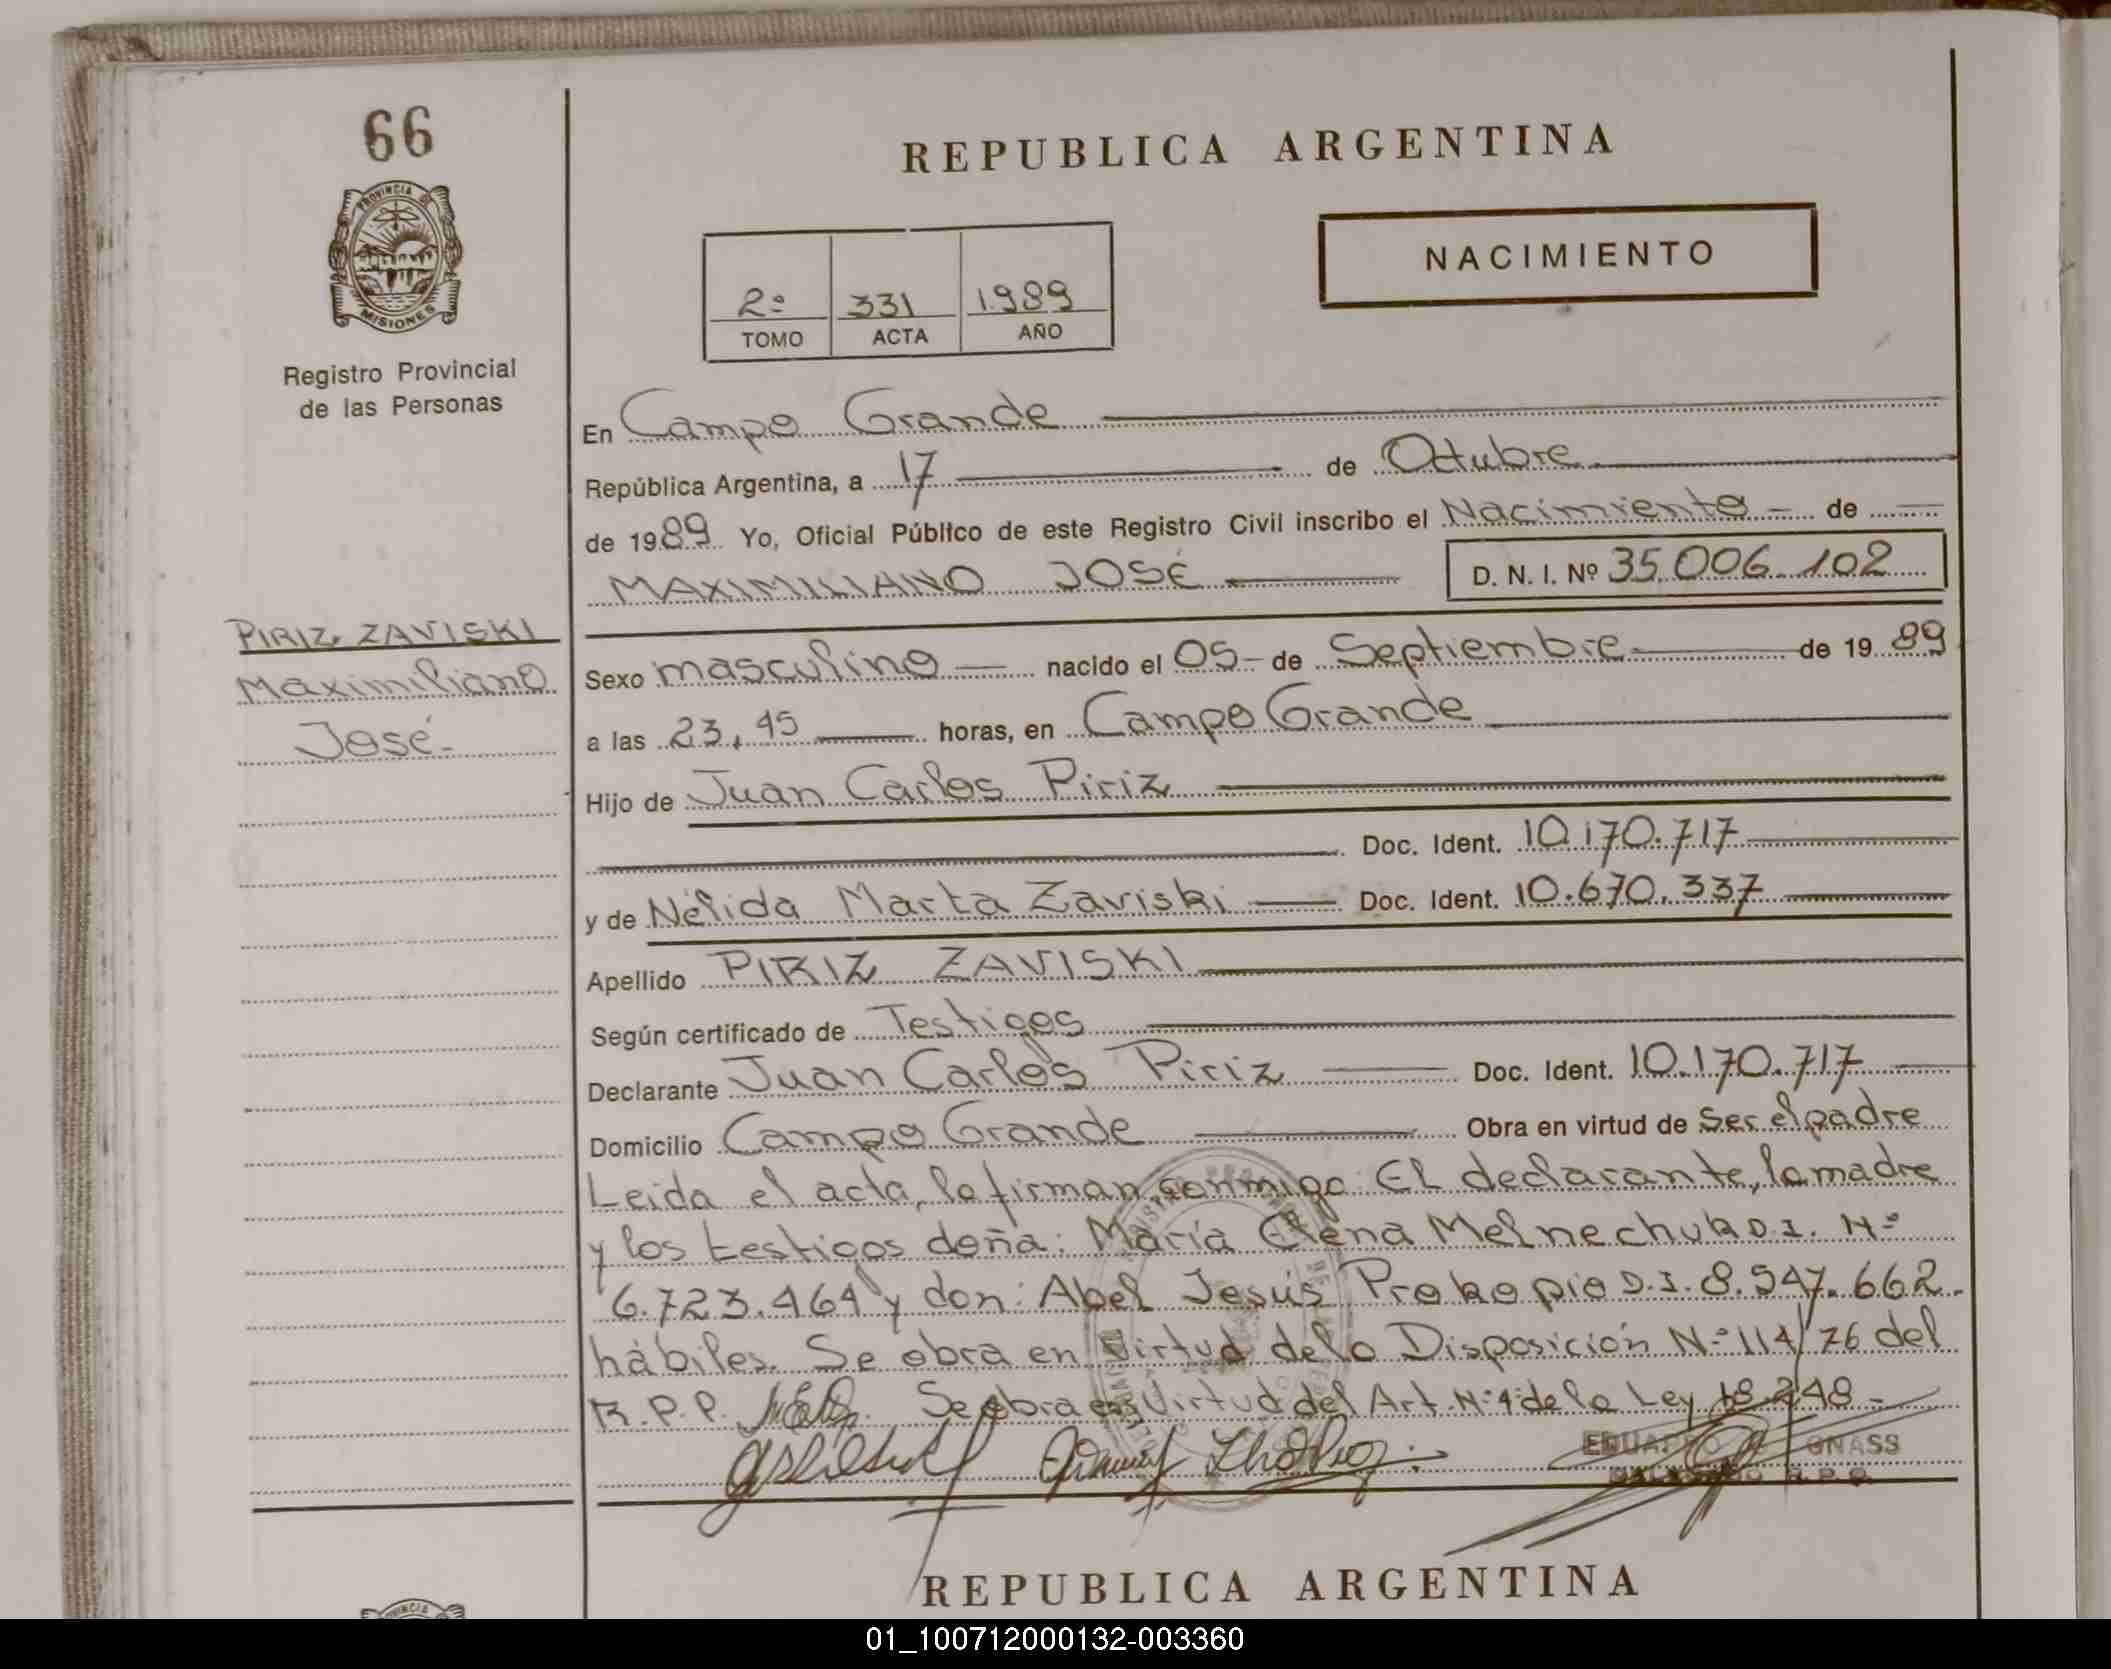 66
REPUBLICA ARGENTINA
PROVINCIA DE
MISIONES
Registro Provincial
de las Personas
2º 331 1.989
TOMO ACTA AÑO
NACIMIENTO
En Campo Grande
República Argentina, a 17 de Octubre
de 1989 Yo, Oficial Público de este Registro Civil inscribo el Nacimiento - de
MAXIMILIANO JOSÉ D. N. I. Nº 35.006.102
PIRIZ ZAVISKI
Maximiliano
José.-
Sexo masculino nacido el 05 - de Septiembre de 1989
a las 23,45 horas, en Campo Grande
Hijo de Juan Carlos Piriz
Doc. Ident. 10.170.717
y de Nélida Marta Zaviski Doc. Ident. 10.670.337
Apellido PIRIZ ZAVISKI
Según certificado de Testigos
Declarante Juan Carlos Piriz Doc. Ident. 10.170.717
Domicilio Campo Grande Obra en virtud de ser el padre
Leida el acta, la firman conmigo: El declarante, la madre
y los testigos doña: María Elena Melnechuk D.I. Nº
6.723.464 y don: Abel Jesús Prokopio D.I. 8.547.662.
hábiles. Se obra en Virtud de la Disposición Nº 114/76 del
R.P.P. Se obra en Virtud del Art. Nº 4 de la Ley 18.248 -
EDUARDO GNASS
REPUBLICA ARGENTINA
01_100712000132-003360